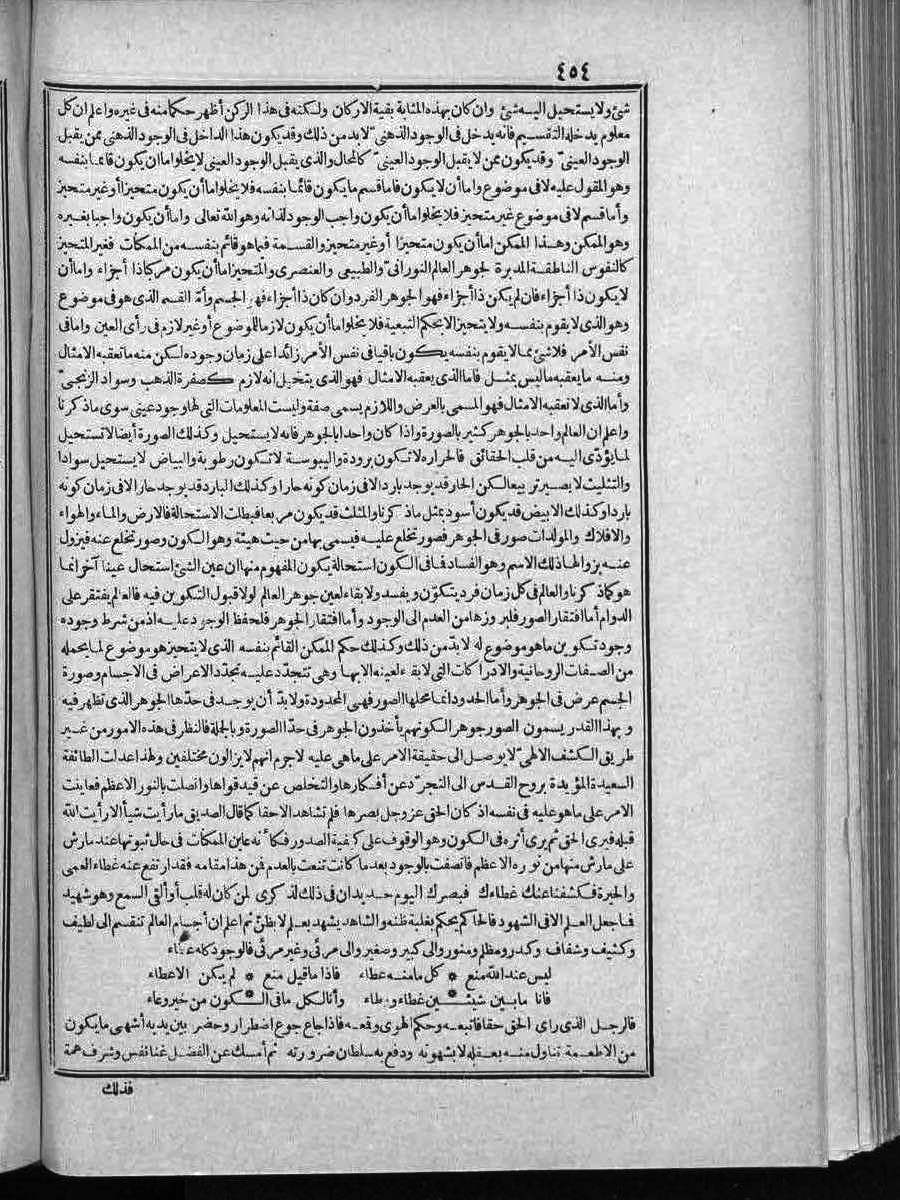 ٤٥٤
شئ ولا يستحيل اليه شئ وان كان بهذه المثابة بقية الاركان ولكنه فى هذا الركن أظهر حكما منه فى غيره واعلم ان كل
معلوم يدخله التقسيم فانه يدخل فى الوجود الذهنى لا بد من ذلك وقد يكون هذا الداخل فى الوجود الذهنى ممن يقبل
الوجود العينى وقد يكون ممن لا يقبل الوجود العينى كالمحال والذى يقبل الوجود العينى لا يخلو اما ان يكون قائما بنفسه
وهو المقول عليه لا فى موضوع واما أن لا يكون فاما قسيم ما يكون قائما بنفسه فلا يخلو اما أن يكون متحيزا أو غير متحيز
وأما قسم لا فى موضوع غير متحيز فلا يخلو اما أن يكون واجب الوجود لذاته وهو الله تعالى واما أن يكون واجبا بغيره
وهو الممكن وهذا الممكن اما أن يكون متحيزا أو غير متحيز والقسمة فيما هو قائم بنفسه من الممكنات فغير المتحيز
كالنفوس الناطقة المدبرة لجوهر العالم النورانى والطبيعى والعنصرى والمتحيز اما أن يكون مركبا ذا أجزاء واما أن
لا يكون ذا أجزاء فان لم يكن ذا أجزاء فهو الجوهر الفرد وان كان ذا أجزاء فهو الجسم وأما القسم الذى هو فى موضوع
وهو الذى لا يقوم بنفسه ولا يتحيز الا بحكم التبعية فلا يخلو اما أن يكون لازما للموضوع أو غير لازم فى رأى العين واما فى
نفس الأمر فلا شئ مما لا يقوم بنفسه يكون باقيا فى نفس الأمر زائدا على زمان وجوده لكن منه ما تعقبه الامثال
ومنه ما يعقبه ما ليس بمثل فاما الذى يعقبه الامثال فهو الذى يتخيل انه لازم كصفرة الذهب وسواد الزنجى
وأما الذى لا تعقبه الامثال فهو المسمى بالعرض واللازم يسمى صفة وليست المعلومات التى لها وجود عينى سوى ماذكرنا
واعلم ان العالم واحد بالجوهر كثير بالصورة واذا كان واحدا بالجوهر فانه لا يستحيل وكذلك الصورة أيضا لا تستحيل
لما يؤدّى اليه من قلب الحقائق فالحراره لا تكون برودة واليبوسة لا تكون رطوبة والبياض لا يستحيل سوادا
والتثليث لا يصير تربيعا لكن الحار قد يوجد باردا لا فى زمان كونه حارا وكذلك البارد قد يوجد حارا لا فى زمان كونه
باردا وكذلك الابيض قد يكون أسود بمثل ماذكرنا والمثلث قد يكون مربعا فبطلت الاستحالة فالارض والماء والهواء
والافلاك والمولدات صور فى الجوهر فصور تخلع عليه فيسمى بها من حيث هيئته وهو الكون وصور تخلع عنه فيزول
عنه بزوالها ذلك الاسم وهو الفساد فما فى الكون استحالة يكون المفهوم منها ان عين الشئ استحال عينا آخر انما
هو كماذكرنا والعالم فى كل زمان فرد يتكوّن ويفسد ولا بقاء لعين جوهر العالم لولا قبول التكوين فيه فالعالم يفتقر على
الدوام أما افتقار الصور فلبروزها من العدم الى الوجود وأما افتقار الجوهر فلحفظ الوجود عليه اذ من شرط وجوده
وجود تكوين ما هو موضوع له لا بدّ من ذلك وكذلك حكم الممكن القائم بنفسه الذى لا يتحيز هو موضوع لما يحمله
من الصفات الروحانية والادراكات التى لا بقاء لعينه الا بها وهى تتجدّد عليه تجدّد الاعراض فى الاجسام وصورة
الجسم عرض فى الجوهر وأما الحدود انما محلها الصور فهى المحدودة ولا بدّ أن يوجد فى حدّها الجوهر الذى تظهر فيه
وبهذا القدر يسمون الصور جوهرا لكونهم يأخذون الجوهر فى حدّ الصورة وبالجملة فالنظر فى هذه الامور من غير
طريق الكشف الالهى لا يوصل الى حقيقة الامر على ما هى عليه لا جرم انهم لا يزالون مختلفين ولهذا عدلت الطائفة
السعيدة المؤيدة بروح القدس الى التجرّد عن أفكارها والتخلص عن قيد قواها واتصلت بالنور الاعظم فعاينت
الامر على ما هو عليه فى نفسه اذ كان الحق عز وجل بصرها فلم تشاهد الا حقا كما قال الصديق ما رأيت شيأ الا رأيت الله
قبله فيرى الحق ثم يرى أثره فى الكون وهو الوقوف على كيفية الصدور فكأنه عاين الممكنات فى حال ثبوتها عند ما رش
على ما رش منها من نوره الاعظم فاتصفت بالوجود بعد ما كانت تنعت بالعدم فمن هذا مقامه فقد ارتفع عنه غطاء العمى
والحيرة فكشفنا عنك غطاءك فبصرك اليوم حديد ان فى ذلك لذكرى لمن كان له قلب أو ألقى السمع وهو شهيد
فاجعل العلم الا فى الشهود فالحاكم يحكم بغلبة ظنه والشاهد يشهد بعلم لا بظنّ ثم اعلم ان أجسام العالم تنقسم الى لطيف
وكثيف وشفاف وكدر ومظلم ومنور والى كبير وصغير والى مرئى وغير مرئى فالوجود كله عطاء
ليس عند الله منع * كل ما منه عطاء فاذا ما قيل منع * لم يكن الا عطاء
فانا ما بين شيئين غطاء ووطاء وأنا لكل ما فى الكون من خير وعاء
فالرجل الذى رأى الحق حقا فاتبعه وحكم الهوى وقمعه فاذا جاع جوع اضطرار وحضر بين يديه أشهى ما يكون
من الاطعمة تناول منه بعقله لا بشهوته ودفع به سلطان ضرورته ثم أمسك عن الفضل غنا نفس وشرف همة
فذلك